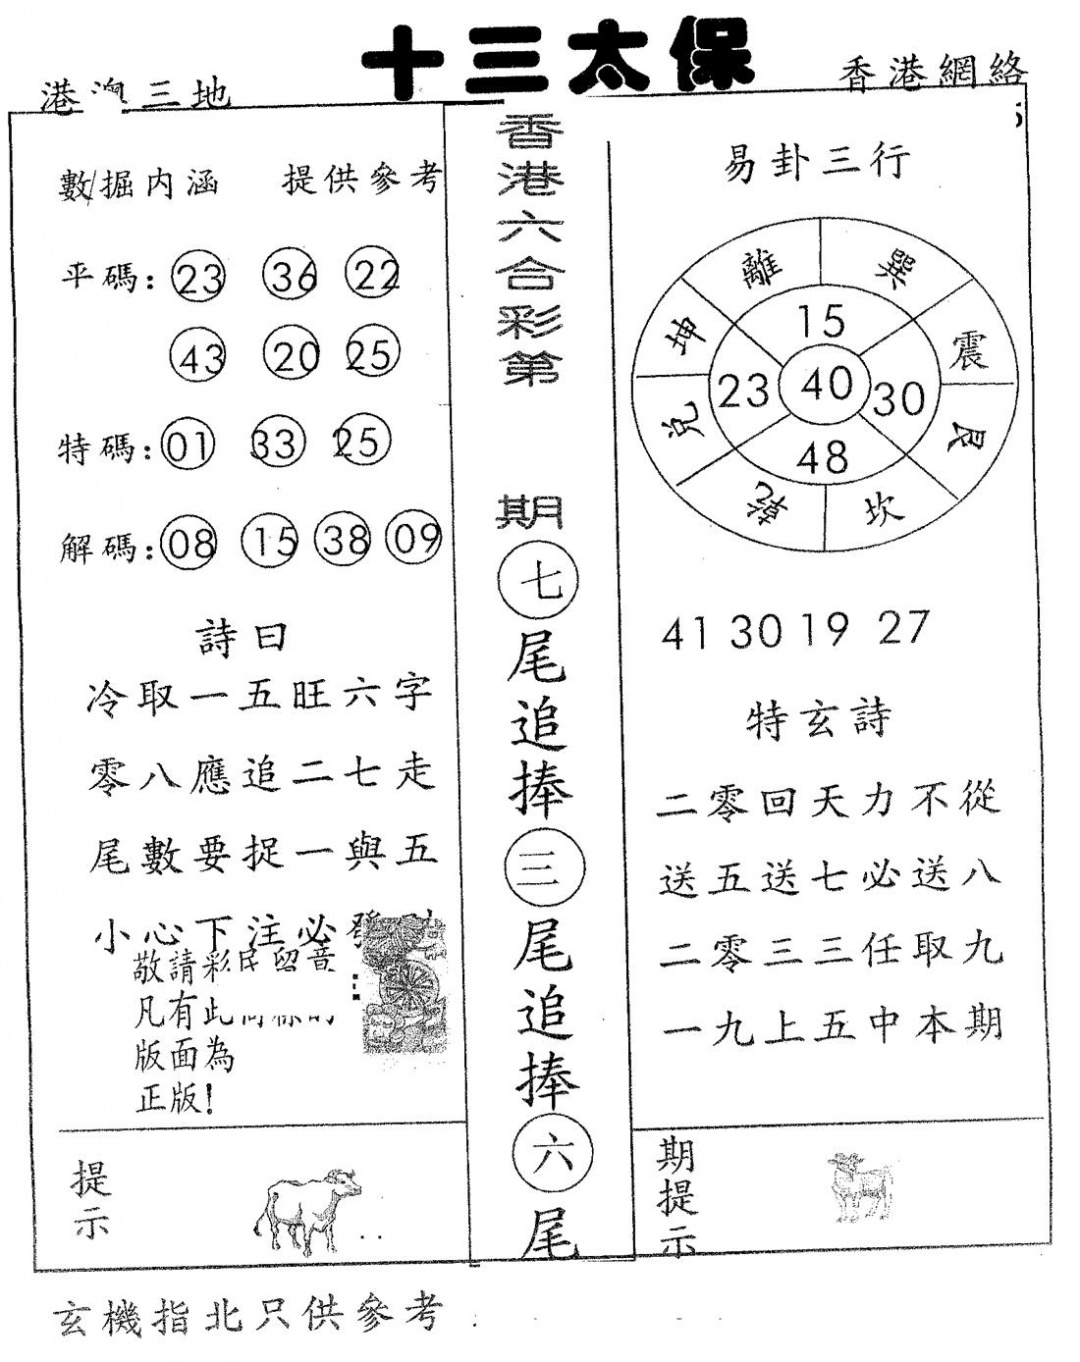 十三太保
港澳三地
香港網絡
數掘内涵 提供參考
平碼：23 36 22
43 20 25
特碼：01 33 25
解碼：08 15 38 09
詩曰
冷取一五旺六字
零八應追二七走
尾數要捉一與五
小心下注必發
敬請彩民留意
凡有此
版面為
正版！
提示
香港六合彩第
期
七尾追捧三尾追捧六尾
易卦三行
離 巽
坤 震
兌 艮
乾 坎
15
23 40 30
48
41 30 19 27
特玄詩
二零回天力不從
送五送七必送八
二零三三任取九
一九上五中本期
期提示
玄機指北只供參考